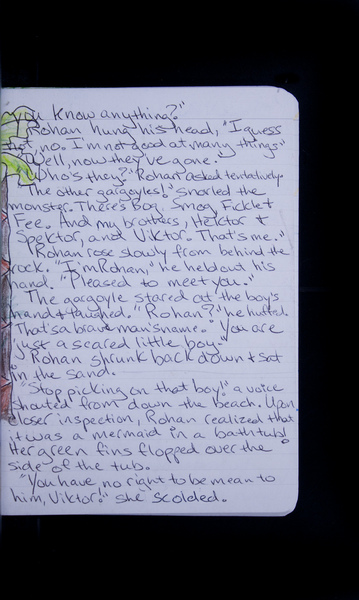 you know anything?"
Rohan hung his head, "I guess
not, no. I'm not good at many things."
"Well, now they've gone."
"Who's they?" Rohan asked tentatively.
"The other gargoyles!" snarled the
monster. There's Bog, Smog, Ficklet
Fee. And my brothers, Hektor &
Spektor, and Viktor. That's me."
Rohan rose slowly from behind the
rock. "I'm Rohan," he held out his
hand. "Pleased to meet you."
The gargoyle stared at the boy's
hand & laughed. "Rohan?" he huffed.
That's a brave man's name." You are
just a scared little boy."
Rohan shrunk back down & sat
in the sand.
"Stop picking on that boy!" a voice
shouted from down the beach. Upon
closer inspection, Rohan realized that
it was a mermaid in a bathtub!
Her green fins flopped over the
side of the tub.
"You have no right to be mean to
him, Viktor!" she scolded.